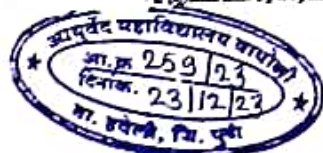 आयुर्वेद महाविद्यालय वाघोली
आ.क्र 259/23
दिनांक. 23/12/23
ता. हवेली, जि. पुणे